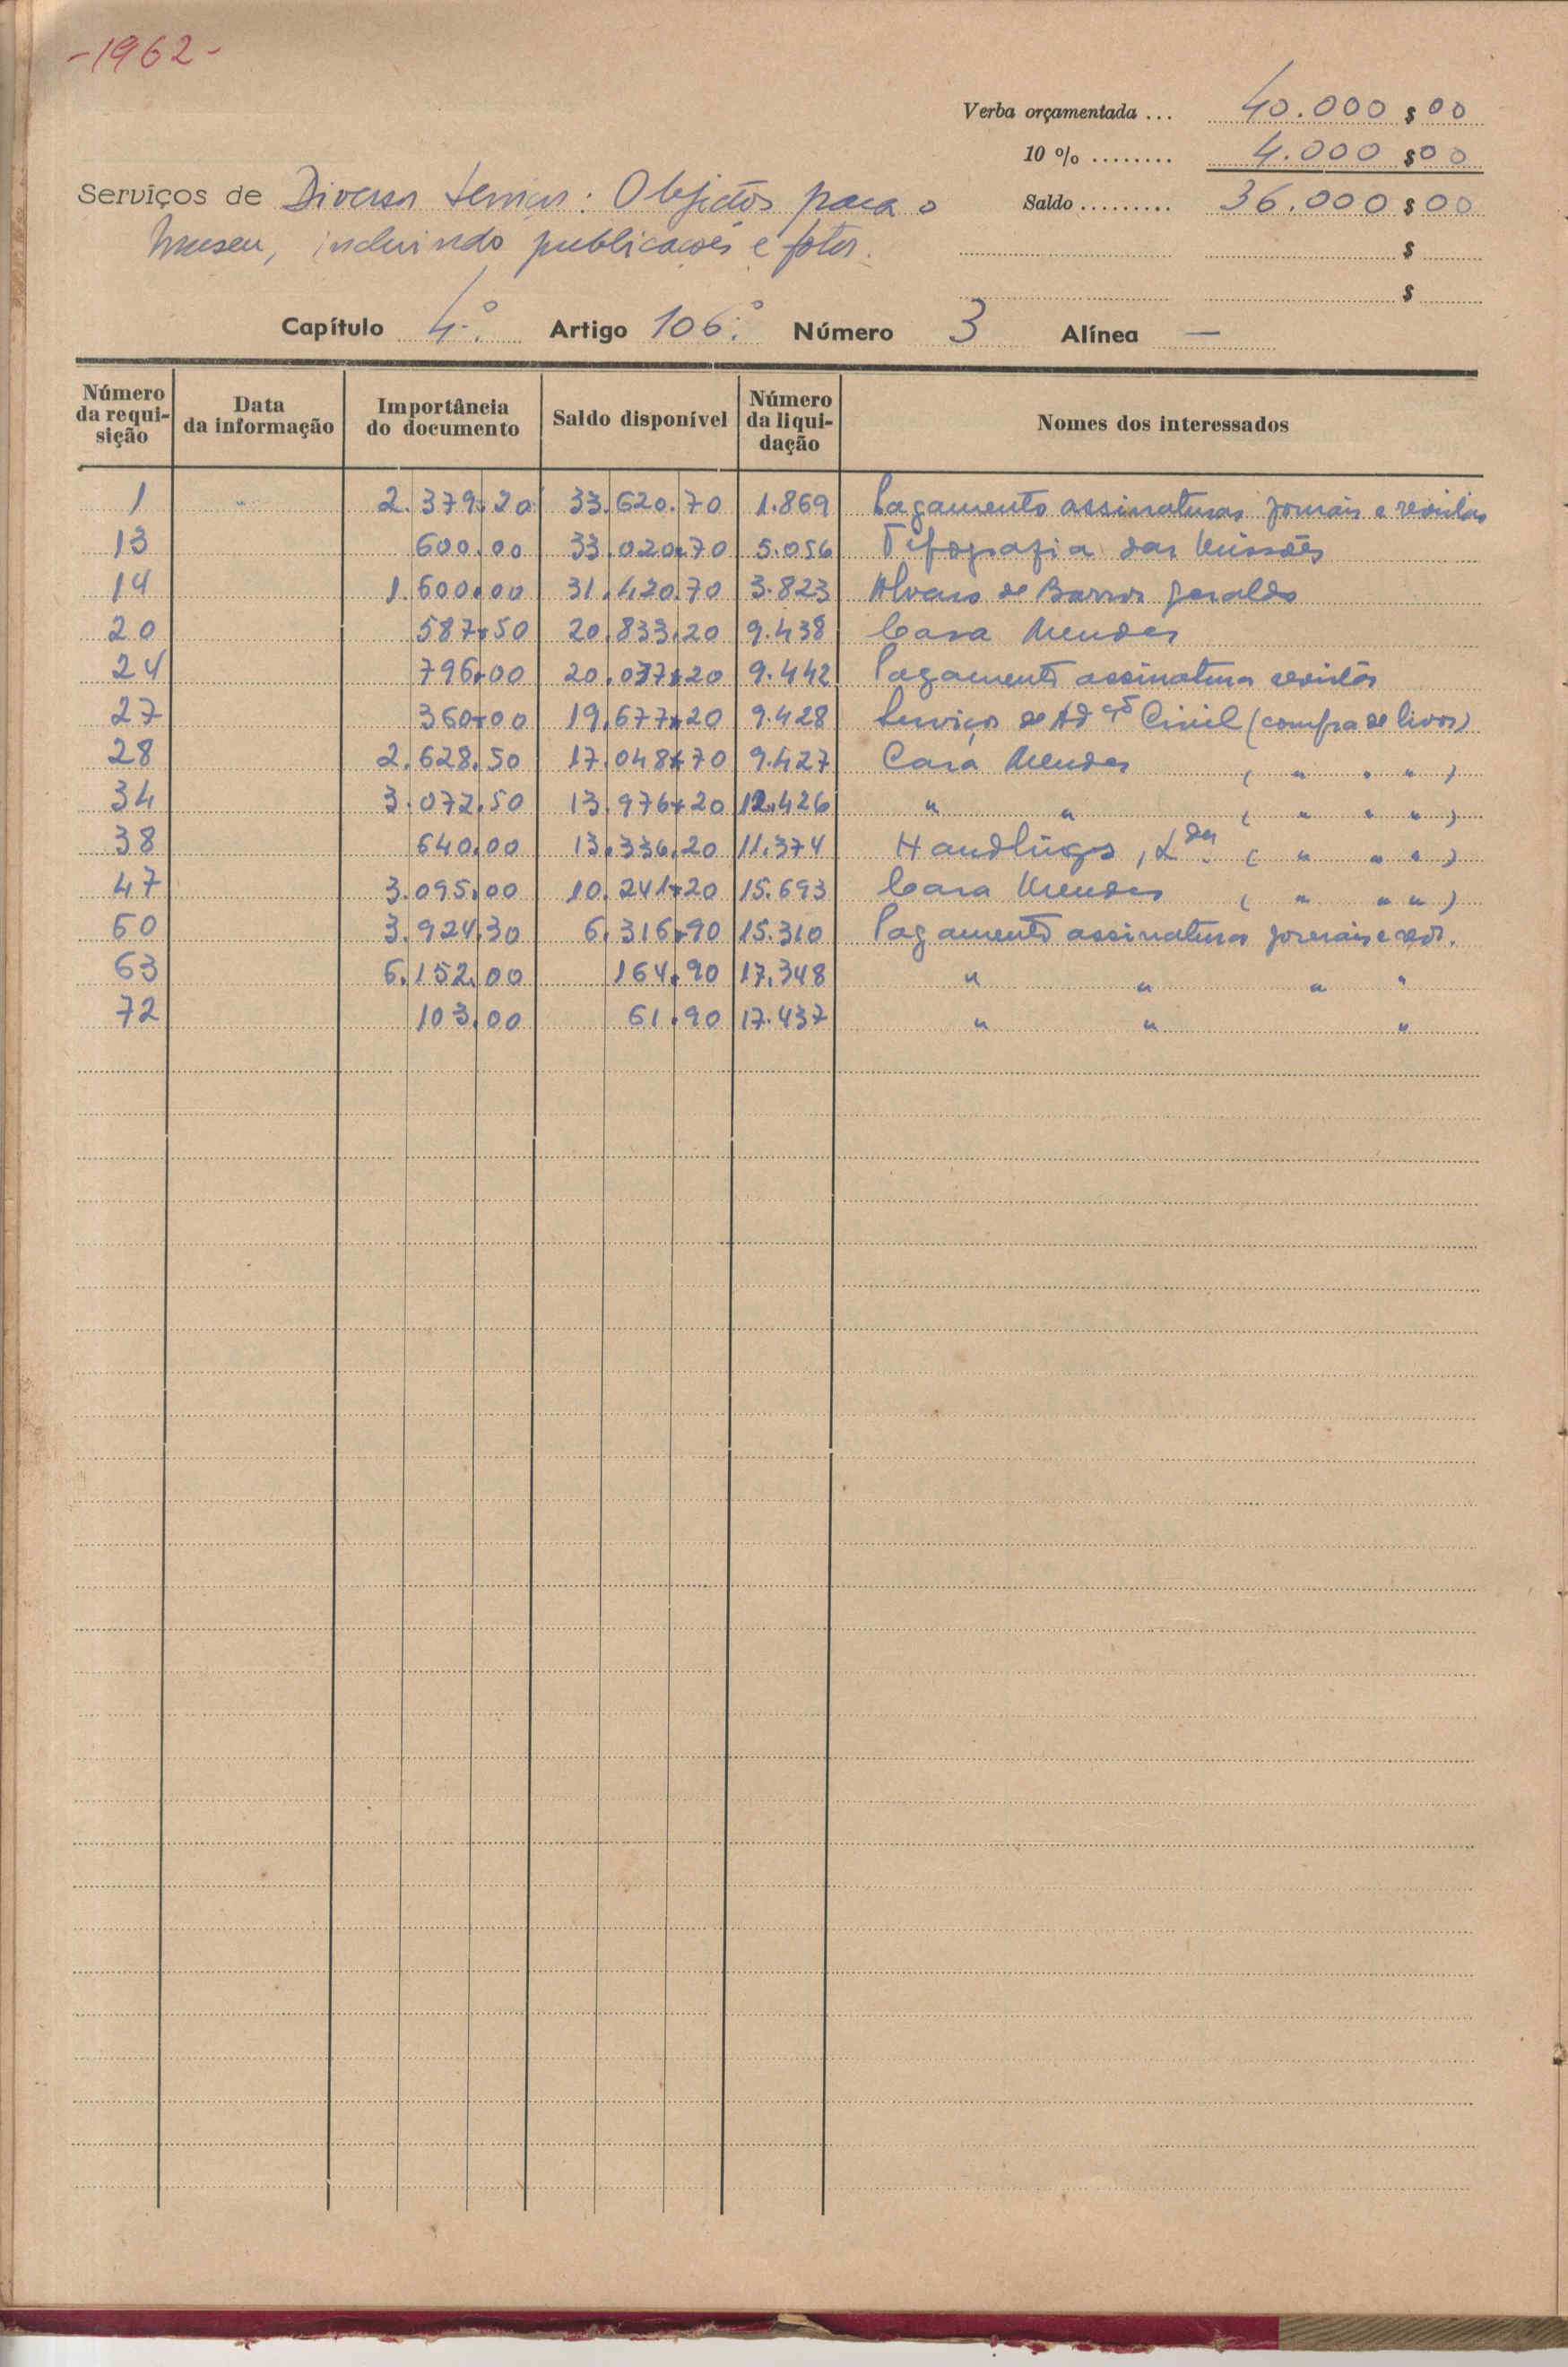 -1962-
Verba orçamentada ... 40.000 $ 00
10 % ........ 4.000 $ 00
Serviços de Diversos temas: Objectos para o
Saldo ......... 36.000 $ 00
Museu, incluindo publicações e fotos.
$
$
Capítulo 4.º Artigo 106.º Número 3 Alínea —
Número da requi-sição Data da informação Importância do documento Saldo disponível Número da liqui-dação Nomes dos interessados
1 " 2.379.20 33.620.70 1.869 Pagamento assinaturas jornais e revistas
13 600.00 33.020.70 5.056 Tipografia das Missões
14 1.600.00 31.420.70 3.823 Alvaro de Barros Geraldo
20 587.50 20.833.20 9.438 Casa Mendes
24 796.00 20.037.20 9.442 Pagamento assinatura revistas
27 360.00 19.677.20 9.428 Serviços de Adçº Civil (compra de livros)
28 2.628.50 17.048.70 9.427 Casa Mendes ( " " " )
34 3.072.50 13.976.20 12.426 " " ( " " " )
38 640.00 13.336.20 11.374 , Lda. ( " " " )
47 3.095.00 10.241.20 15.693 Casa Mendes ( " " " )
60 3.924.30 6.316.90 15.310 Pagamento assinaturas jornais e rev.
63 6.152.00 164.90 17.348 " " " "
72 103.00 61.90 17.437 " " "